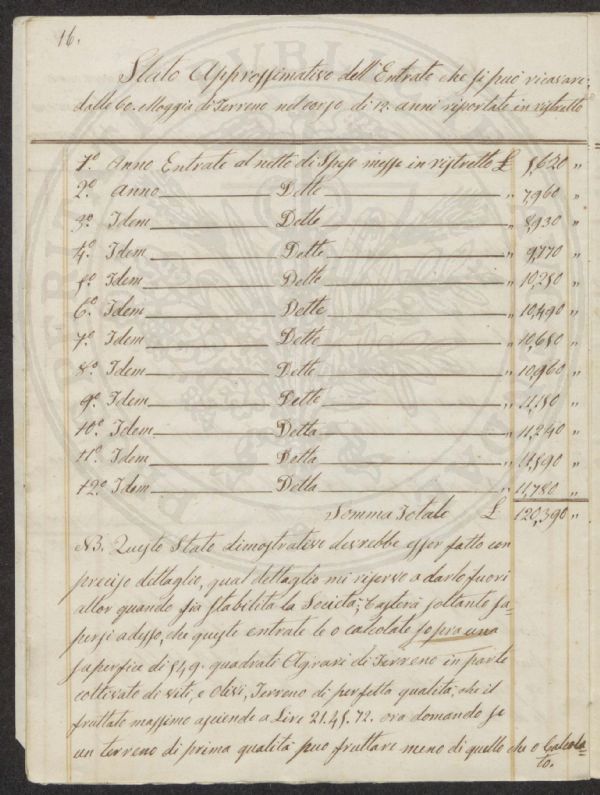 16.
Stato Approssimativo dell'Entrate che si può ricavare;
dalle 60. Moggia di Terreno nel corso di 12. anni riportate in ristretto
1º Anno Entrate al netto di Spese messe in ristretto £ 5,620 "
2º Anno Dette " 7,960 "
3º Idem Dette " 8,930 "
4º Idem Dette " 9,770 "
5º Idem Dette " 10,250 "
6º Idem Dette " 10,490 "
7º Idem Dette " 10,650 "
8º Idem Dette " 10,960 "
9º Idem Dette " 11,150 "
10º Idem Detta " 11,240 "
11º Idem Detta " 11,590 "
12º Idem Detta " 11,780 "
Somma Totale £ 120,390 "
NB. Questo Stato dimostrativo dovrebbe esser fatto con
preciso dettaglio, qual dettaglio mi riservo a darlo fuori
allor quando sia stabilita la Società; basterà soltanto sa=
persi adesso, che queste entrate le o calcolate sopra una
superfice di 549. quadrati Agrari di Terreno in parte
coltivato di viti, e olivi, Terreno di perfetta qualità, che il
fruttato massimo asciende a Lire 21.45.72. ora domando se
un terreno di prima qualità può fruttare meno di quello che o Calcola=
to.